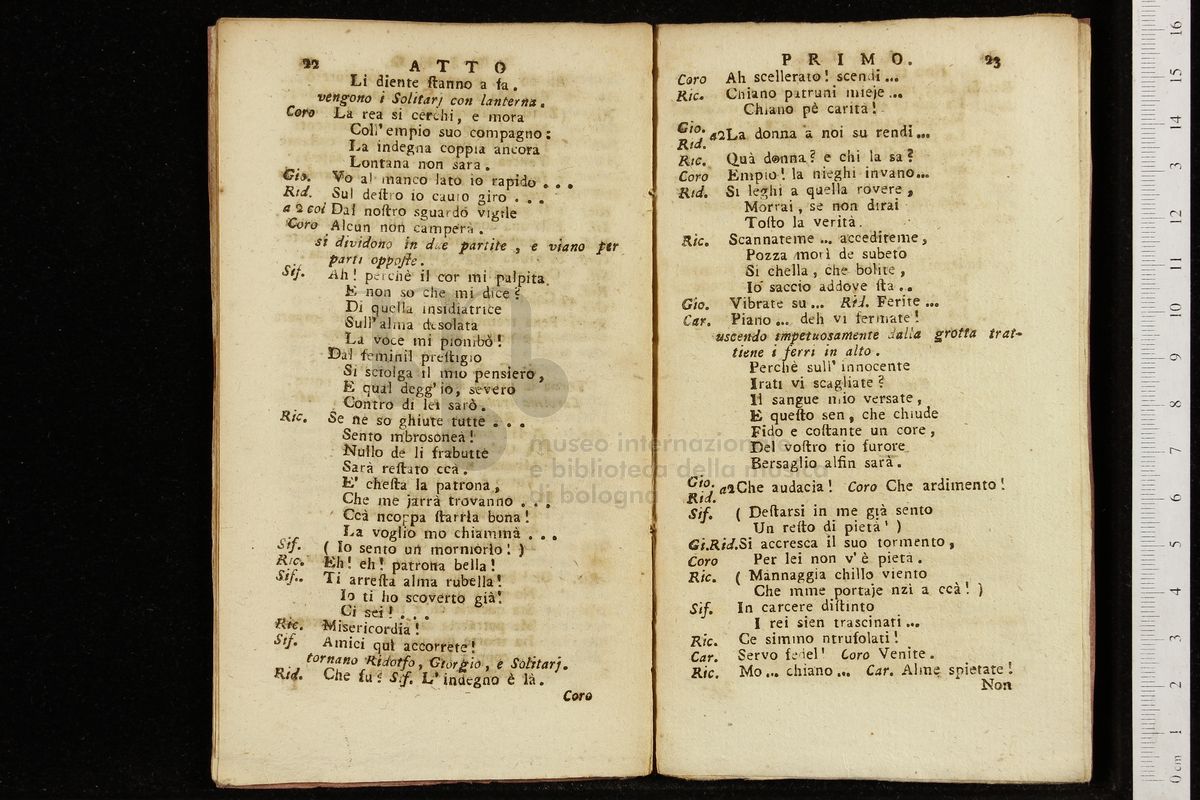 22 ATTO
Li diente ſtanno a fa.
vengono i Solitarj con lanterna.
Coro La rea si cerchi, e mora
Coll' empio suo compagno:
La indegna coppia ancora
Lontana non sarà.
Gio. Vo al manco lato io rapido ...
Rid. Sul deſtro io cauto giro ...
a 2 col Dal noſtro sguardo vigile
Coro Alcun non camperà.
si dividono in due partite, e viano per
parti oppoſte.
Sif. Ah! perchè il cor mi palpita,
E non so che mi dice?
Di quella insidiatrice
Sull' alma desolata
La voce mi piombò!
Dal feminil preſtigio
Si sciolga il mio pensiero,
E qual degg' io, severo
Contro di lei sarò.
Ric. Se ne so ghiute tutte ...
Sento mbrosonea!
Nullo de li frabutte
Sarà reſtato ccà.
E' cheſta la patrona,
Che me jarrà trovanno ...
Ccà ncoppa ſtarrla bona!
La voglio mo chiammà ...
Sif. ( Io sento un mormorio! )
Ric. Eh! eh! patrona bella!
Sif.. Ti arreſta alma rubella!
Io ti ho scoverto già!
Ci sei! ...
Ric. Misericordia!
Sif. Amici quì accorrete!
tornano Ridolfo, Giorgio, e Solitarj.
Rid. Che fu? Sif. L' indegno è là.
Coro
PRIMO. 23
Coro Ah scellerato! scendi ...
Ric. Chiano patruni mieje ...
Chiano pè carità!
Gio.
Rid. a2 La donna a noi su rendi ...
Ric. Quà donna? e chi la sa?
Coro Empio! la nieghi invano...
Rid. Si leghi a quella rovere,
Morrai, se non dirai
Toſto la verità.
Ric. Scannateme ... accediteme,
Pozza morì de subeto
Si chella, che bolite,
Io saccio addove ſta ..
Gio. Vibrate su ... Rid. Ferite ...
Car. Piano ... deh vi fermate!
uscendo impetuosamente dalla grotta trat-
tiene i ferri in alto.
Perchè sull' innocente
Irati vi scagliate?
Il sangue mio versate,
E queſto sen, che chiude
Fido e coſtante un core,
Del voſtro rio furore
Bersaglio alfin sarà.
Gio.
Rid. a2 Che audacia! Coro Che ardimento!
Sif. ( Deſtarsi in me già sento
Un reſto di pietà! )
Gi.Rid. Si accresca il suo tormento,
Coro Per lei non v' è pietà.
Ric. ( Mannaggia chillo viento
Che mme portaje nzì a ccà! )
Sif. In carcere diſtinto
I rei sien trascinati ...
Ric. Ce simmo ntrufolati!
Car. Servo fedel! Coro Venite.
Ric. Mo ... chiano ... Car. Alme spietate!
Non
museo internazionale
e biblioteca della musica
di bologna
0 cm 1 2 3 4 5 6 7 8 9 10 11 12 13 14 15 16